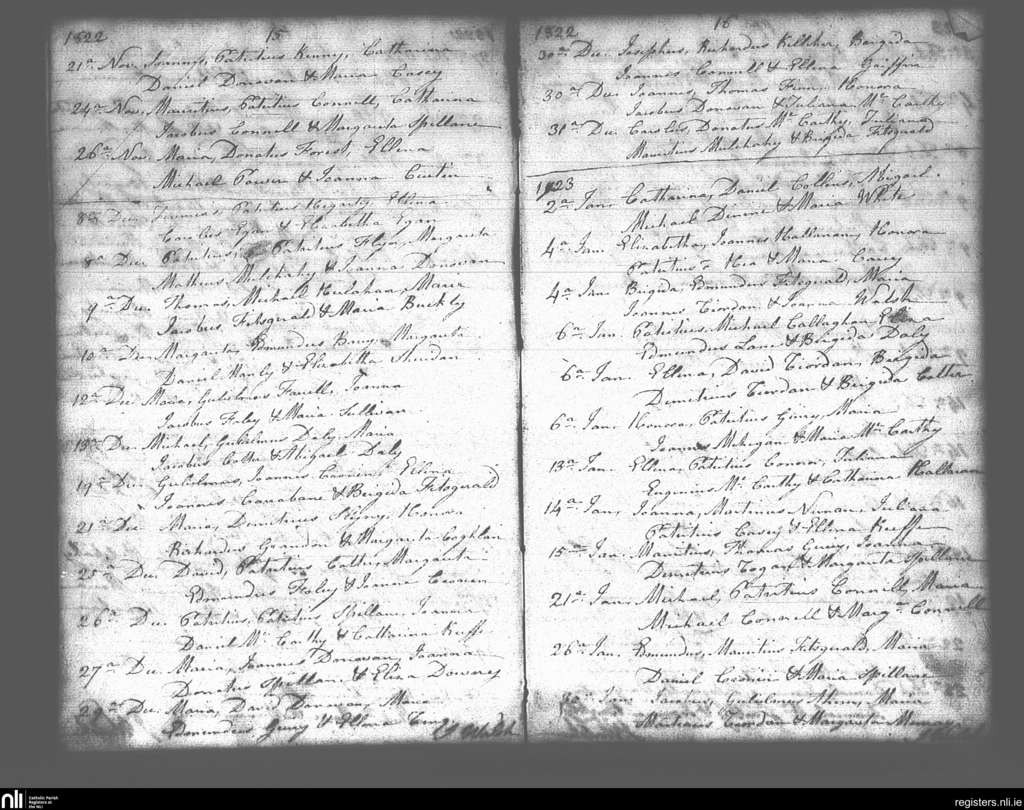 1822 15
21a Nov. Joannes, Patritius Kenny, Catharina
Daniel Donovan & Maria Casey
24a Nov. Mauritius, Patritius Connell, Catharina
Jacobus Connell & Margarita Spillane
26a Nov. Maria, Donatus Forest, Ellena
Michael Power & Joanna Curtin
8a Dec. Patritius Hegarty, Ellena
Carolus Egan & Elisabetha Egan
8a Dec. Patritius, Patritius Flyn, Margarita
Matheus Mulchahy & Joanna Donovan
9a Dec. Thomas, Michael Hulahan, Maria
Jacobus Fitsgerald & Maria Buckly
10a Dec. Margarita, Edmundus Barry, Margarita
Daniel & Elisabetha
12a Dec. Maria, Gulielmus Farell, Joanna
Jacobus Foley & Maria Sullivan
Dec. Michael, Gulielmus Daly, Maria
Jacobus & Abigael Daly
19a Dec. Gulielmus, Joannes Ellena
Joannes & Brigida Fitsgerald
21a Dec. Maria, Demetrius Honora
Richardus & Margarita Coghlan
25a Dec. David, Patritius Margarita
Edmundus Foley & Joanna
26a Dec. Patritius, Patritius Spillane, Joanna
Daniel Mc Carthy & Catharina Keeffe
27a Dec. Maria, Joannes Donovan, Joanna
Donatus Spillane & Eliza
Dec. Maria, David Donovan, Maria
Edmundus & Ellena
Walsh
1822 16
30a Dec. Josephus, Richardus Kelleher, Brigida
Joannes Connell & Ellena Griffin
30a Dec. Joannes, Thomas Finn, Honora
Jacobus Donovan & Juliana Mc Carthy
31a Dec. Carolus, Donatus Mc Carthy, Juliana
Mauritius Mulchahy & Brigida Fitsgerald
1823
2a Jan. Catharina, Daniel Collins, Abigael
Michael & Maria White
4a Jan. Elizabetha, Joannes Hallanan, Honora
Patritius & Maria Casey
4a Jan. Brigida Edmundus Fitsgerald, Maria
Joannes Riordan & Joanna Walsh
6a Jan. Patritius, Michael Callaghan Ellena
Edmundus Lane & Brigida Daly
6a Jan. Ellena, David Riordan, Brigida
Demetrius Riordan & Brigida Cotter
6a Jan. Honora, Patritius Maria
Joannes Mehigan & Maria Mc Carthy
13a Jan. Ellena, Patritius Connor, Juliana
Eugenius Mc Carthy & Catharina Hallanan
14a Jan. Joanna, Martinus Nunan, Juliana
Patritius Casey & Ellena Keeffe
15a Jan. Mauritius, Thomas Joanna
Demetrius & Margarita Spillane
21a Jan. Michael, Patritius Connell, Maria
Michael Connell & Margta Connell
26a Jan. Edmundus, Mauritius Fitsgerald, Maria
Daniel & Maria Spillane
30a Jan. Jacobus, Gulielmus Maria
Martinus Riordan & Margarita
nli Catholic Parish
Registers at
the NLI
registers.nli.ie